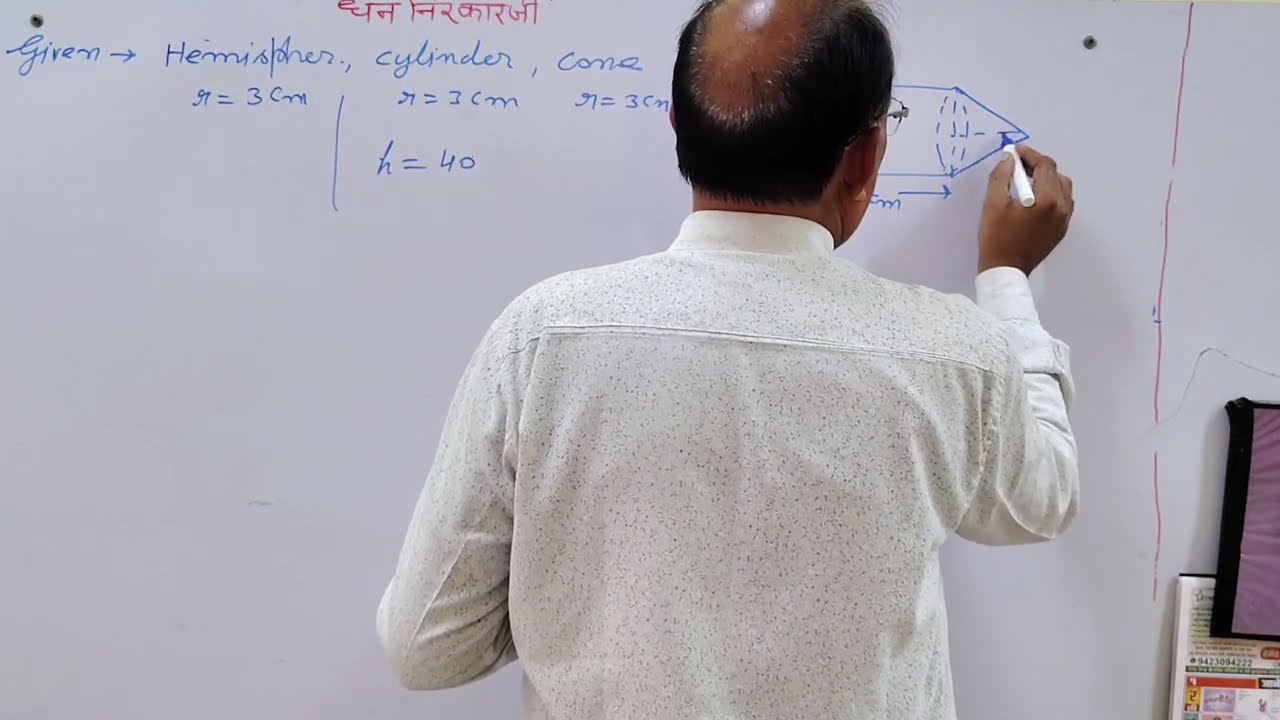 धन निरंकारजी
Given → Hemispher., cylinder, cone
r = 3 cm r = 3 cm r = 3 cm
h = 40
cm
9423094222